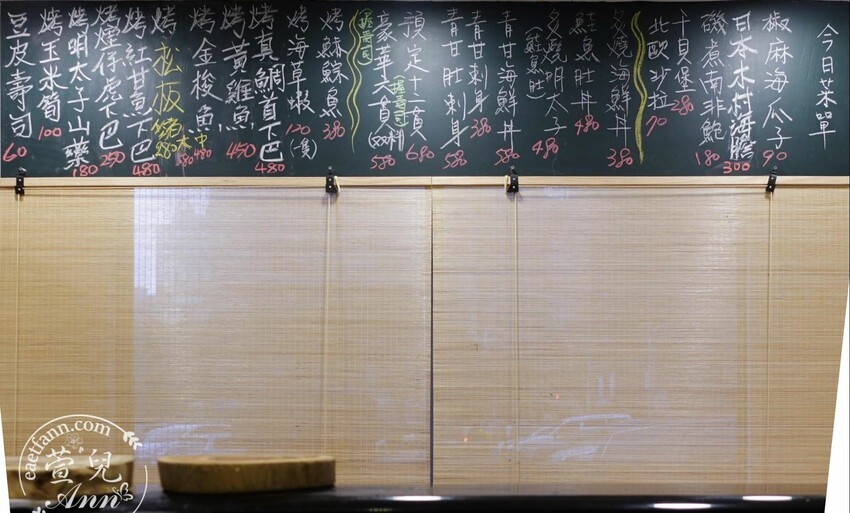 今日菜單
椒麻海瓜子 90
日本木村海膽 300
磯煮南非鮑 180
干貝堡 280
北歐沙拉 70
炙燒海鮮丼 380
鮭魚肚丼 480
炙燒明太子 (鮭魚肚) 480
青甘海鮮丼 580
青甘刺身 380
青甘肚刺身 580
頂定十二貫 (握壽司) 680
豪華六貫 (双料) (握壽司) 580
烤鮢鰥魚 380
烤海草蝦 120 (隻)
烤真鯛首下巴 480
烤黃雞魚 450
烤金梭魚 中 480
烤松板豬 280
烤紅甘魚下巴 480
烤煙仔虎下巴 250
烤明太子山藥 180
烤玉米筍 100
豆皮壽司 60
eaetfann.com
萱兒
Ann